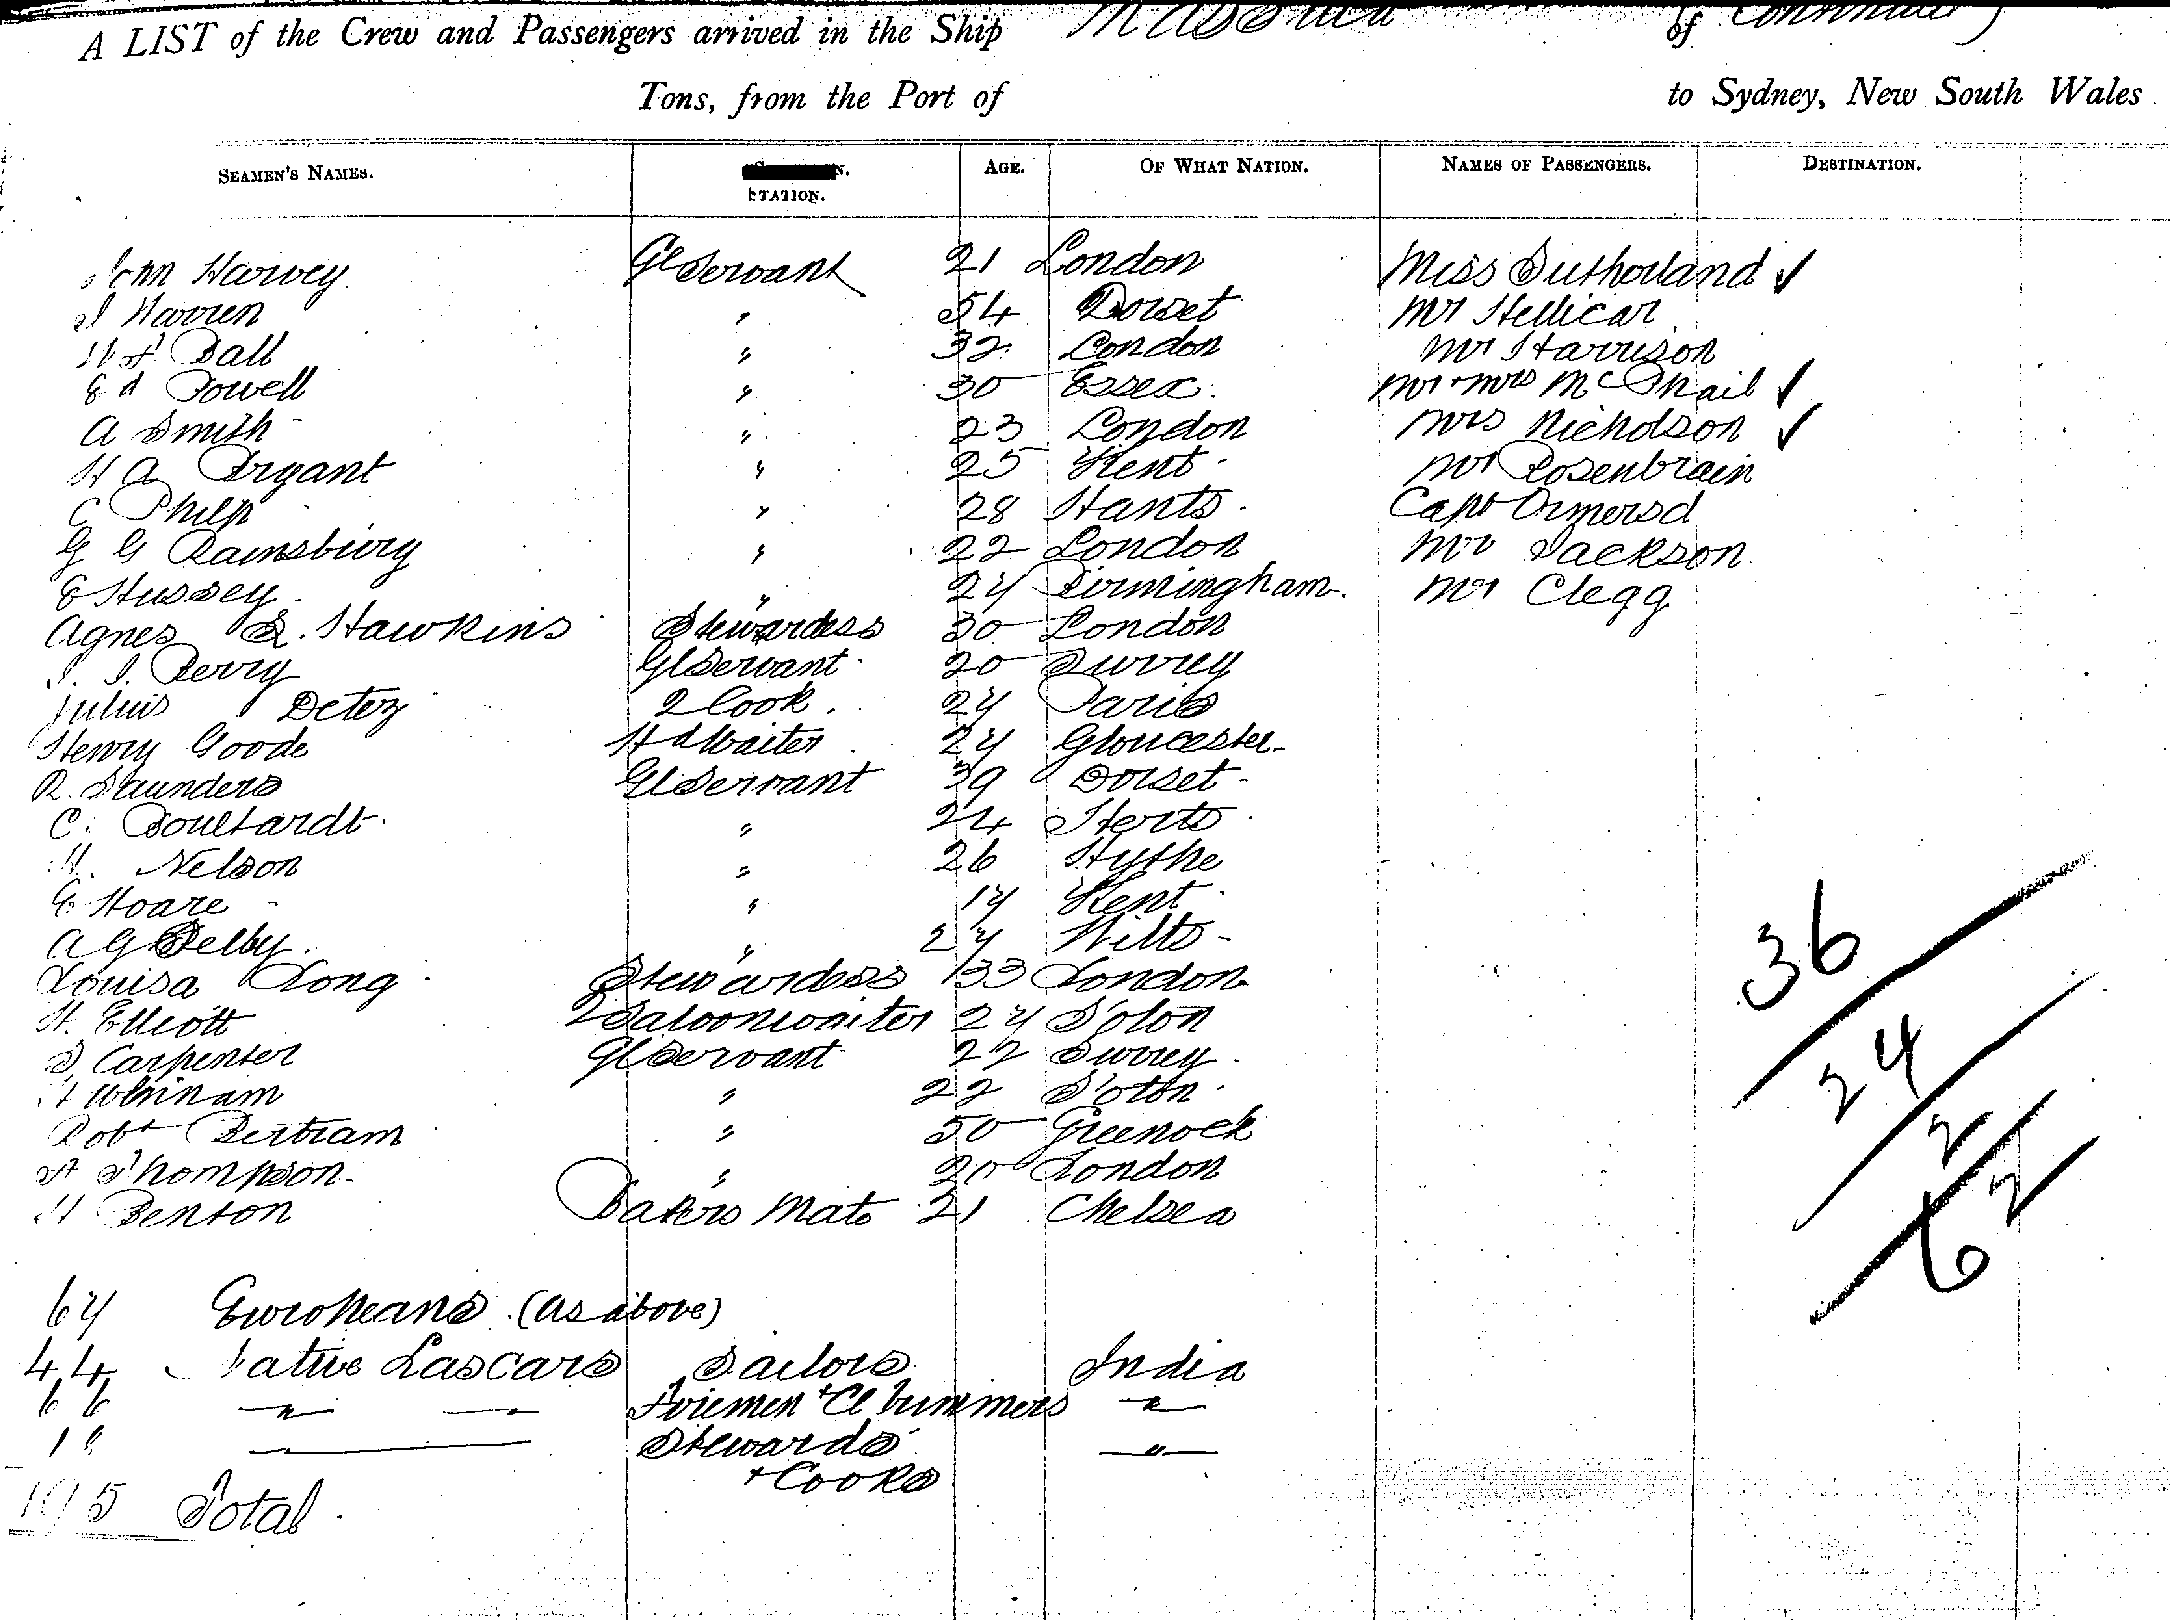 A LIST of the Crew and Passengers arrived in the Ship Massilia of
Tons, from the Port of to Sydney, New South Wales
SEAMEN'S NAMES. STATION. AGE. OF WHAT NATION. NAMES OF PASSENGERS. DESTINATION.
John Harvey Gl Servant 21 London Miss Sutherland ✓
J Warren " 54 Dorset Mr Hellicar
Ball " 32 London Mr Harrison
Ed Powell " 30 Essex. Mr + Mrs McPhail ✓
A Smith " 23 London Mrs Nicholson ✓
H A Bryant " 25 Kent Mr Rosenbrain
C Philp " 28 Hants. Capt Ormerod
G G Rainsbury " 22 London Mr Jackson
E Hussey " 27 Birmingham. Mr Clegg
Agnes E. Hawkins Stewardess 30 London
J. J. Perry Gl Servant 20 Surrey
Julius Detez 2 Cook. 27 Paris
Henry Goode Hd Waiter 27 Gloucester
R. Saunders Gl Servant 39 Dorset
C. Boultardt " 24 Herts
H. Nelson " 26 Hythe
E Hoare " 17 Kent
A G Selby. " 27 Wilts
Louisa Long Stewardess 33 London
H. Elliott 2 Saloon waiter 27 S'oton
S. Carpenter Gl Servant 22 Surrey
H Whinam " 22 S'oton
Robt Bertram " 50 Greenock
A Thompson " 20 London
H Benton Bakers Mate 21 Chelsea
36
24
2
62
67 Europeans (as above)
44 Native Lascars Sailors India
66 " Firemen + Cl Trimmers "
18 Stewards "
+ Cooks
195 Total